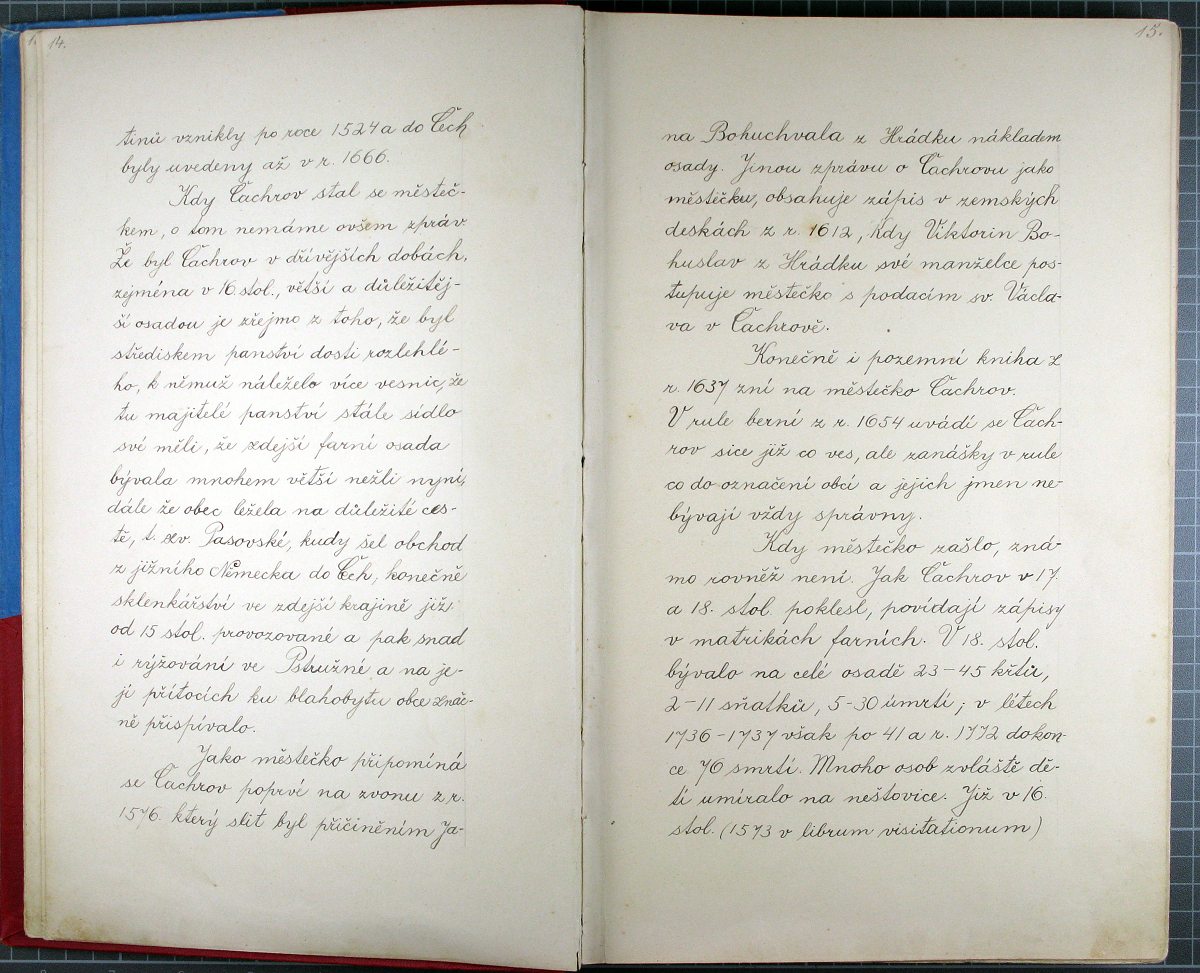 14.
tinů vznikly po roce 1524 a do Čech
byly uvedeny až v r. 1666.
Kdy Čachrov stal se městeč-
kem, o tom nemáme ovšem zpráv.
Že byl Čachrov v dřívějších dobách,
zejména v 16. stol., větší a důležitěj-
ší osadou je zřejmo z toho, že byl
střediskem panství dosti rozlehlé-
ho, k němuž náleželo více vesnic, že
tu majitelé panství stále sídlo
své měli, že zdejší farní osada
bývala mnohem větší nežli nyní,
dále že obec ležela na důležité ces-
tě, t. zv. Pasovské, kudy šel obchod
z jižního Německa do Čech, konečně
sklenkářství ve zdejší krajině již
od 15 stol. provozované a pak snad
i rýžování ve Pstružné a na je-
jí přítocích ku blahobytu obce znač-
ně přispívalo.
Jako městečko připomíná
se Čachrov poprvé na zvonu z r.
1576. který slit byl přičiněním Ja-
15.
na Bohuchvala z Hrádku nákladem
osady. Jinou zprávu o Čachrovu jako
městečku, obsahuje zápis v zemských
deskách z r. 1612, kdy Viktorin Bo-
huslav z Hrádku své manželce pos-
tupuje městečko s podacím sv. Václa-
va v Čachrově.
Konečně i pozemní kniha z
r. 1637 zní na městečko Čachrov.
V rule berní z r. 1654 uvádí se Čach-
rov sice již co ves, ale zanášky v rule
co do označení obcí a jejich jmen ne-
bývají vždy správny.
Kdy městečko zašlo, zná-
mo rovněž není. Jak Čachrov v 17.
a 18. stol. poklesl, povídají zápisy
v matrikách farních. V 18. stol.
bývalo na celé osadě 23-45 křtů,
2-11 sňatků, 5-30 úmrtí; v létech
1736-1737 však po 41 a r. 1772 dokon-
ce 76 smrtí. Mnoho osob zvláště dě-
tí umíralo na neštovice. Již v 16.
stol. (1573 v librum visitationum)